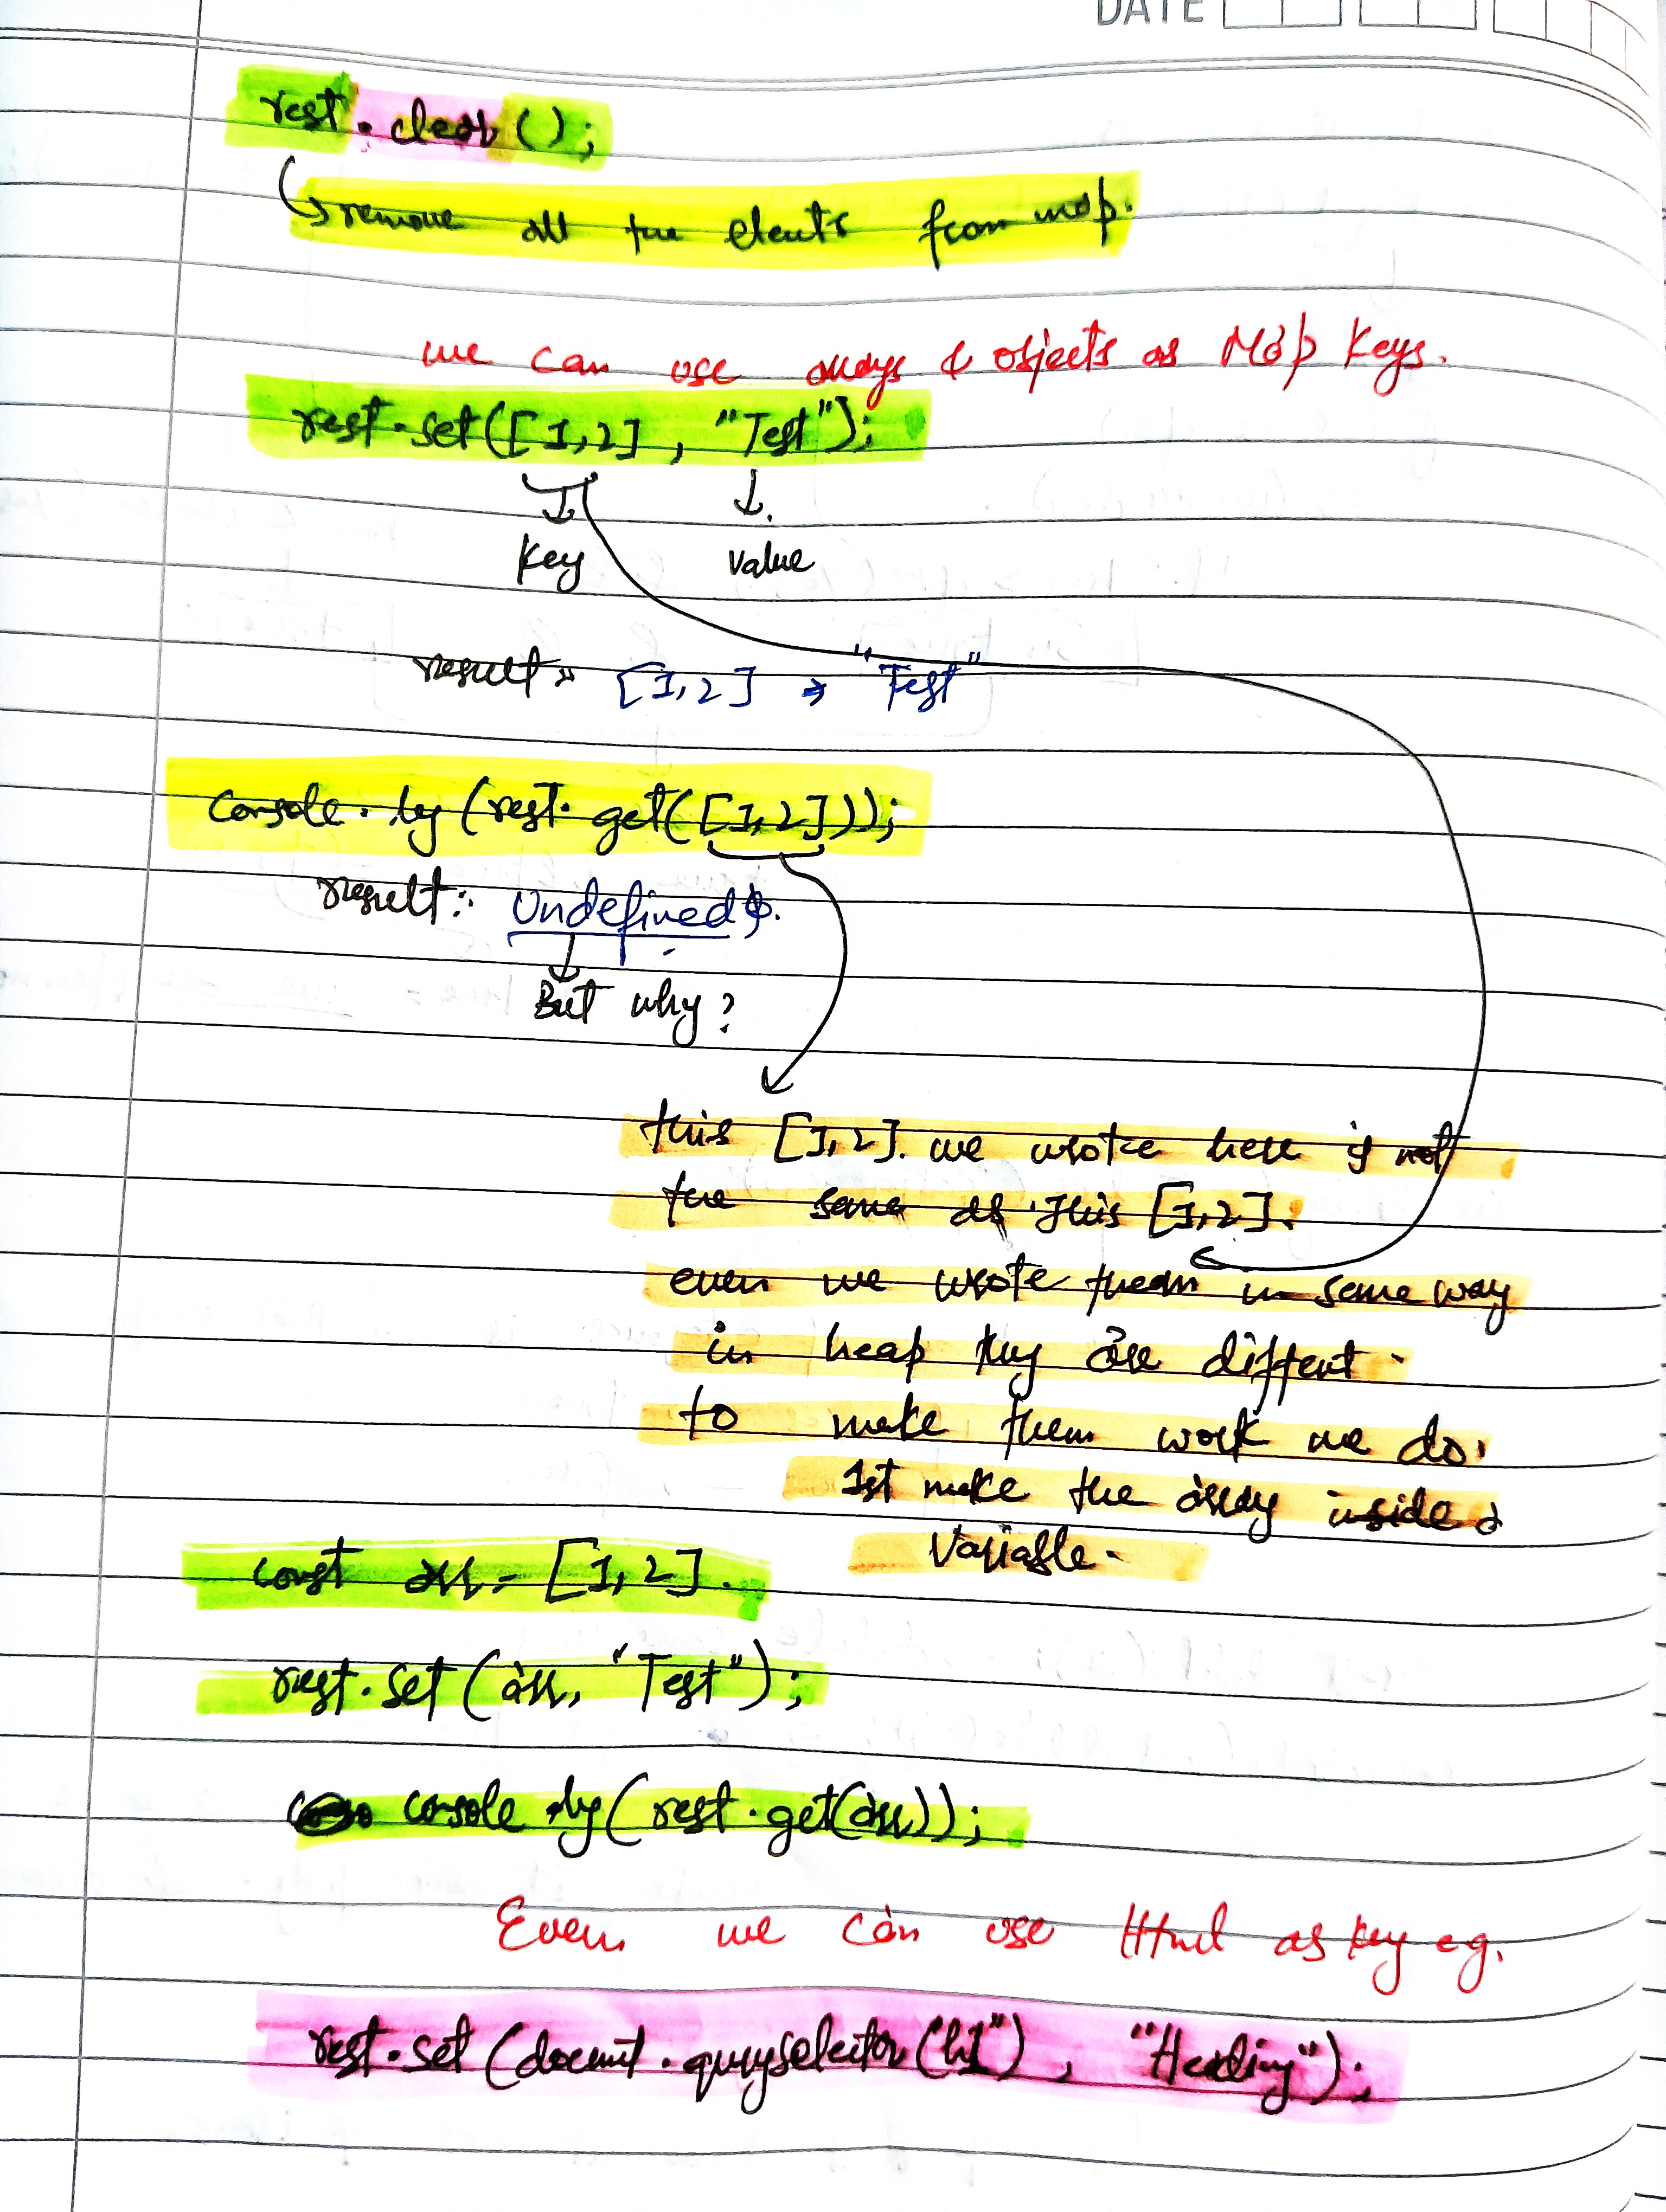 DATE
rest.clear();
remove all the elents from map.
we can use arrays & objects as Map Keys.
rest.set([1,2], "Test");
Key value
result» [1,2] → "Test"
Console.log(rest.get([1,2]));
result: Undefined
But why?
this [1,2]. we wrote here is not
the same as this [1,2].
even we wrote them in same way
in heap they are diffent.
to make them work we do.
1st make the array inside a
Variable.
const arr = [1,2].
rest.set(arr, "Test");
console.log(rest.get(arr));
Even we can use Html as key eg.
rest.set(document.queryselector("h1"), "Heading");